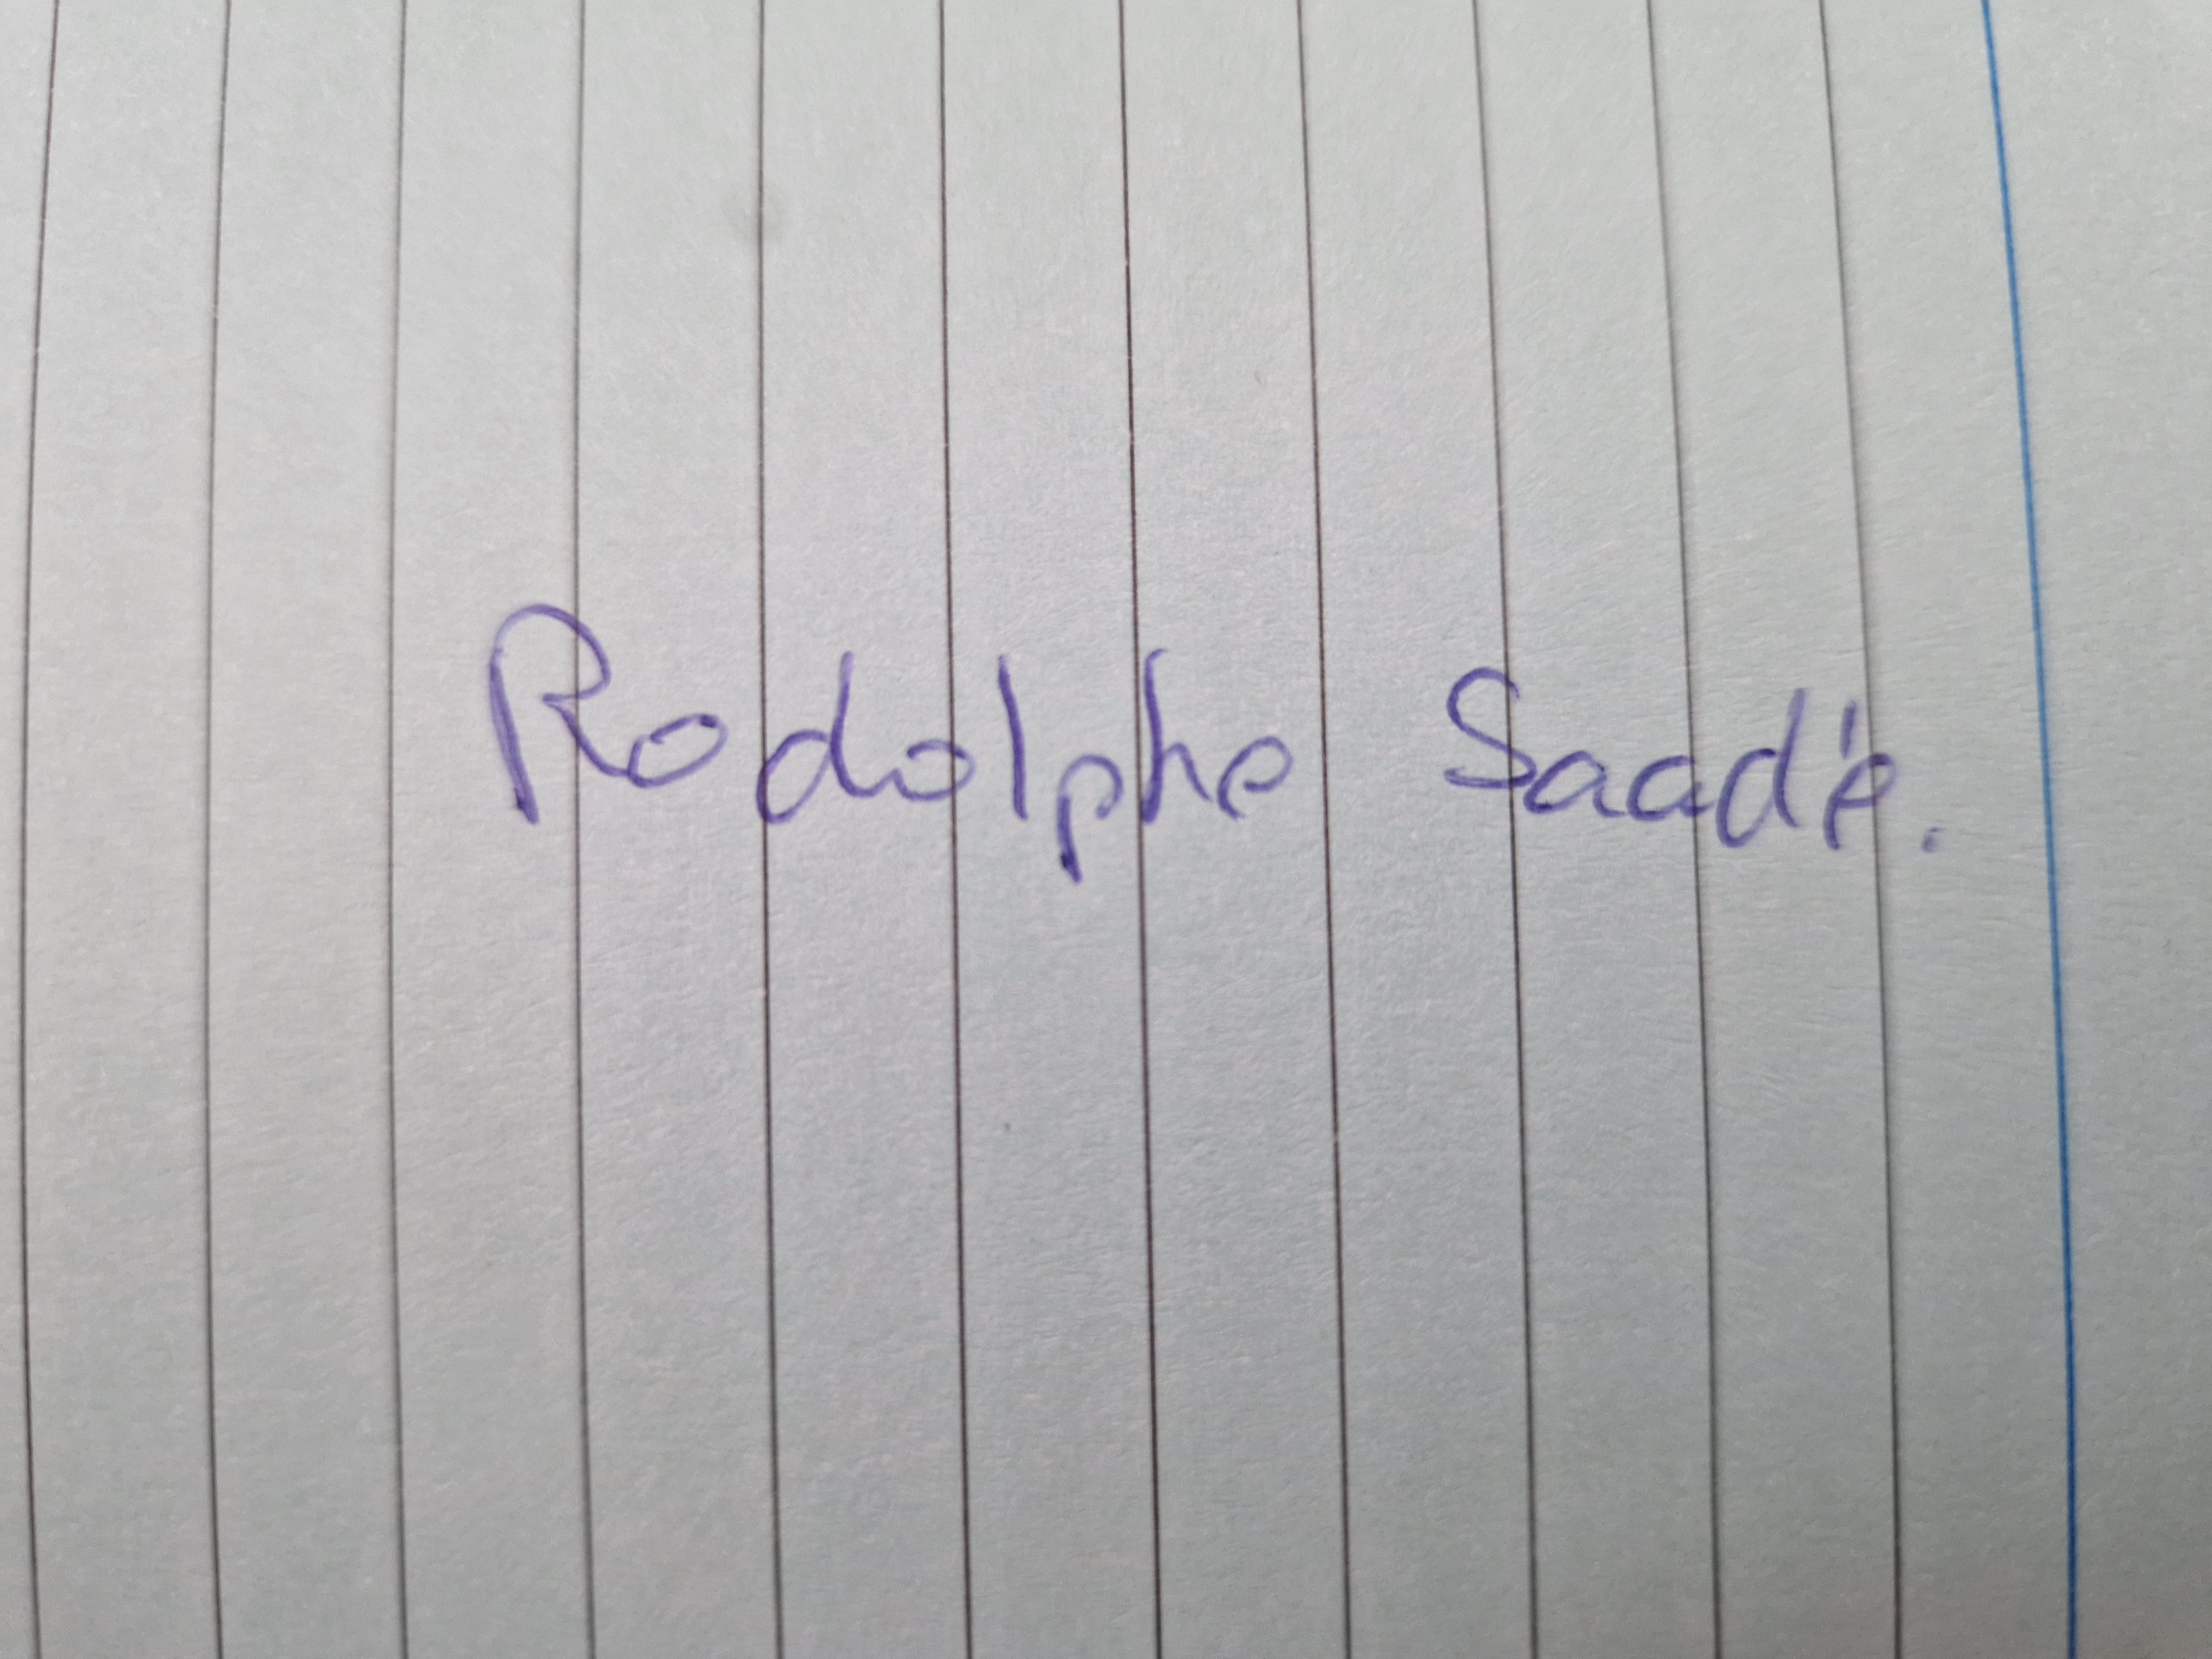 Rodolphe Saadé.